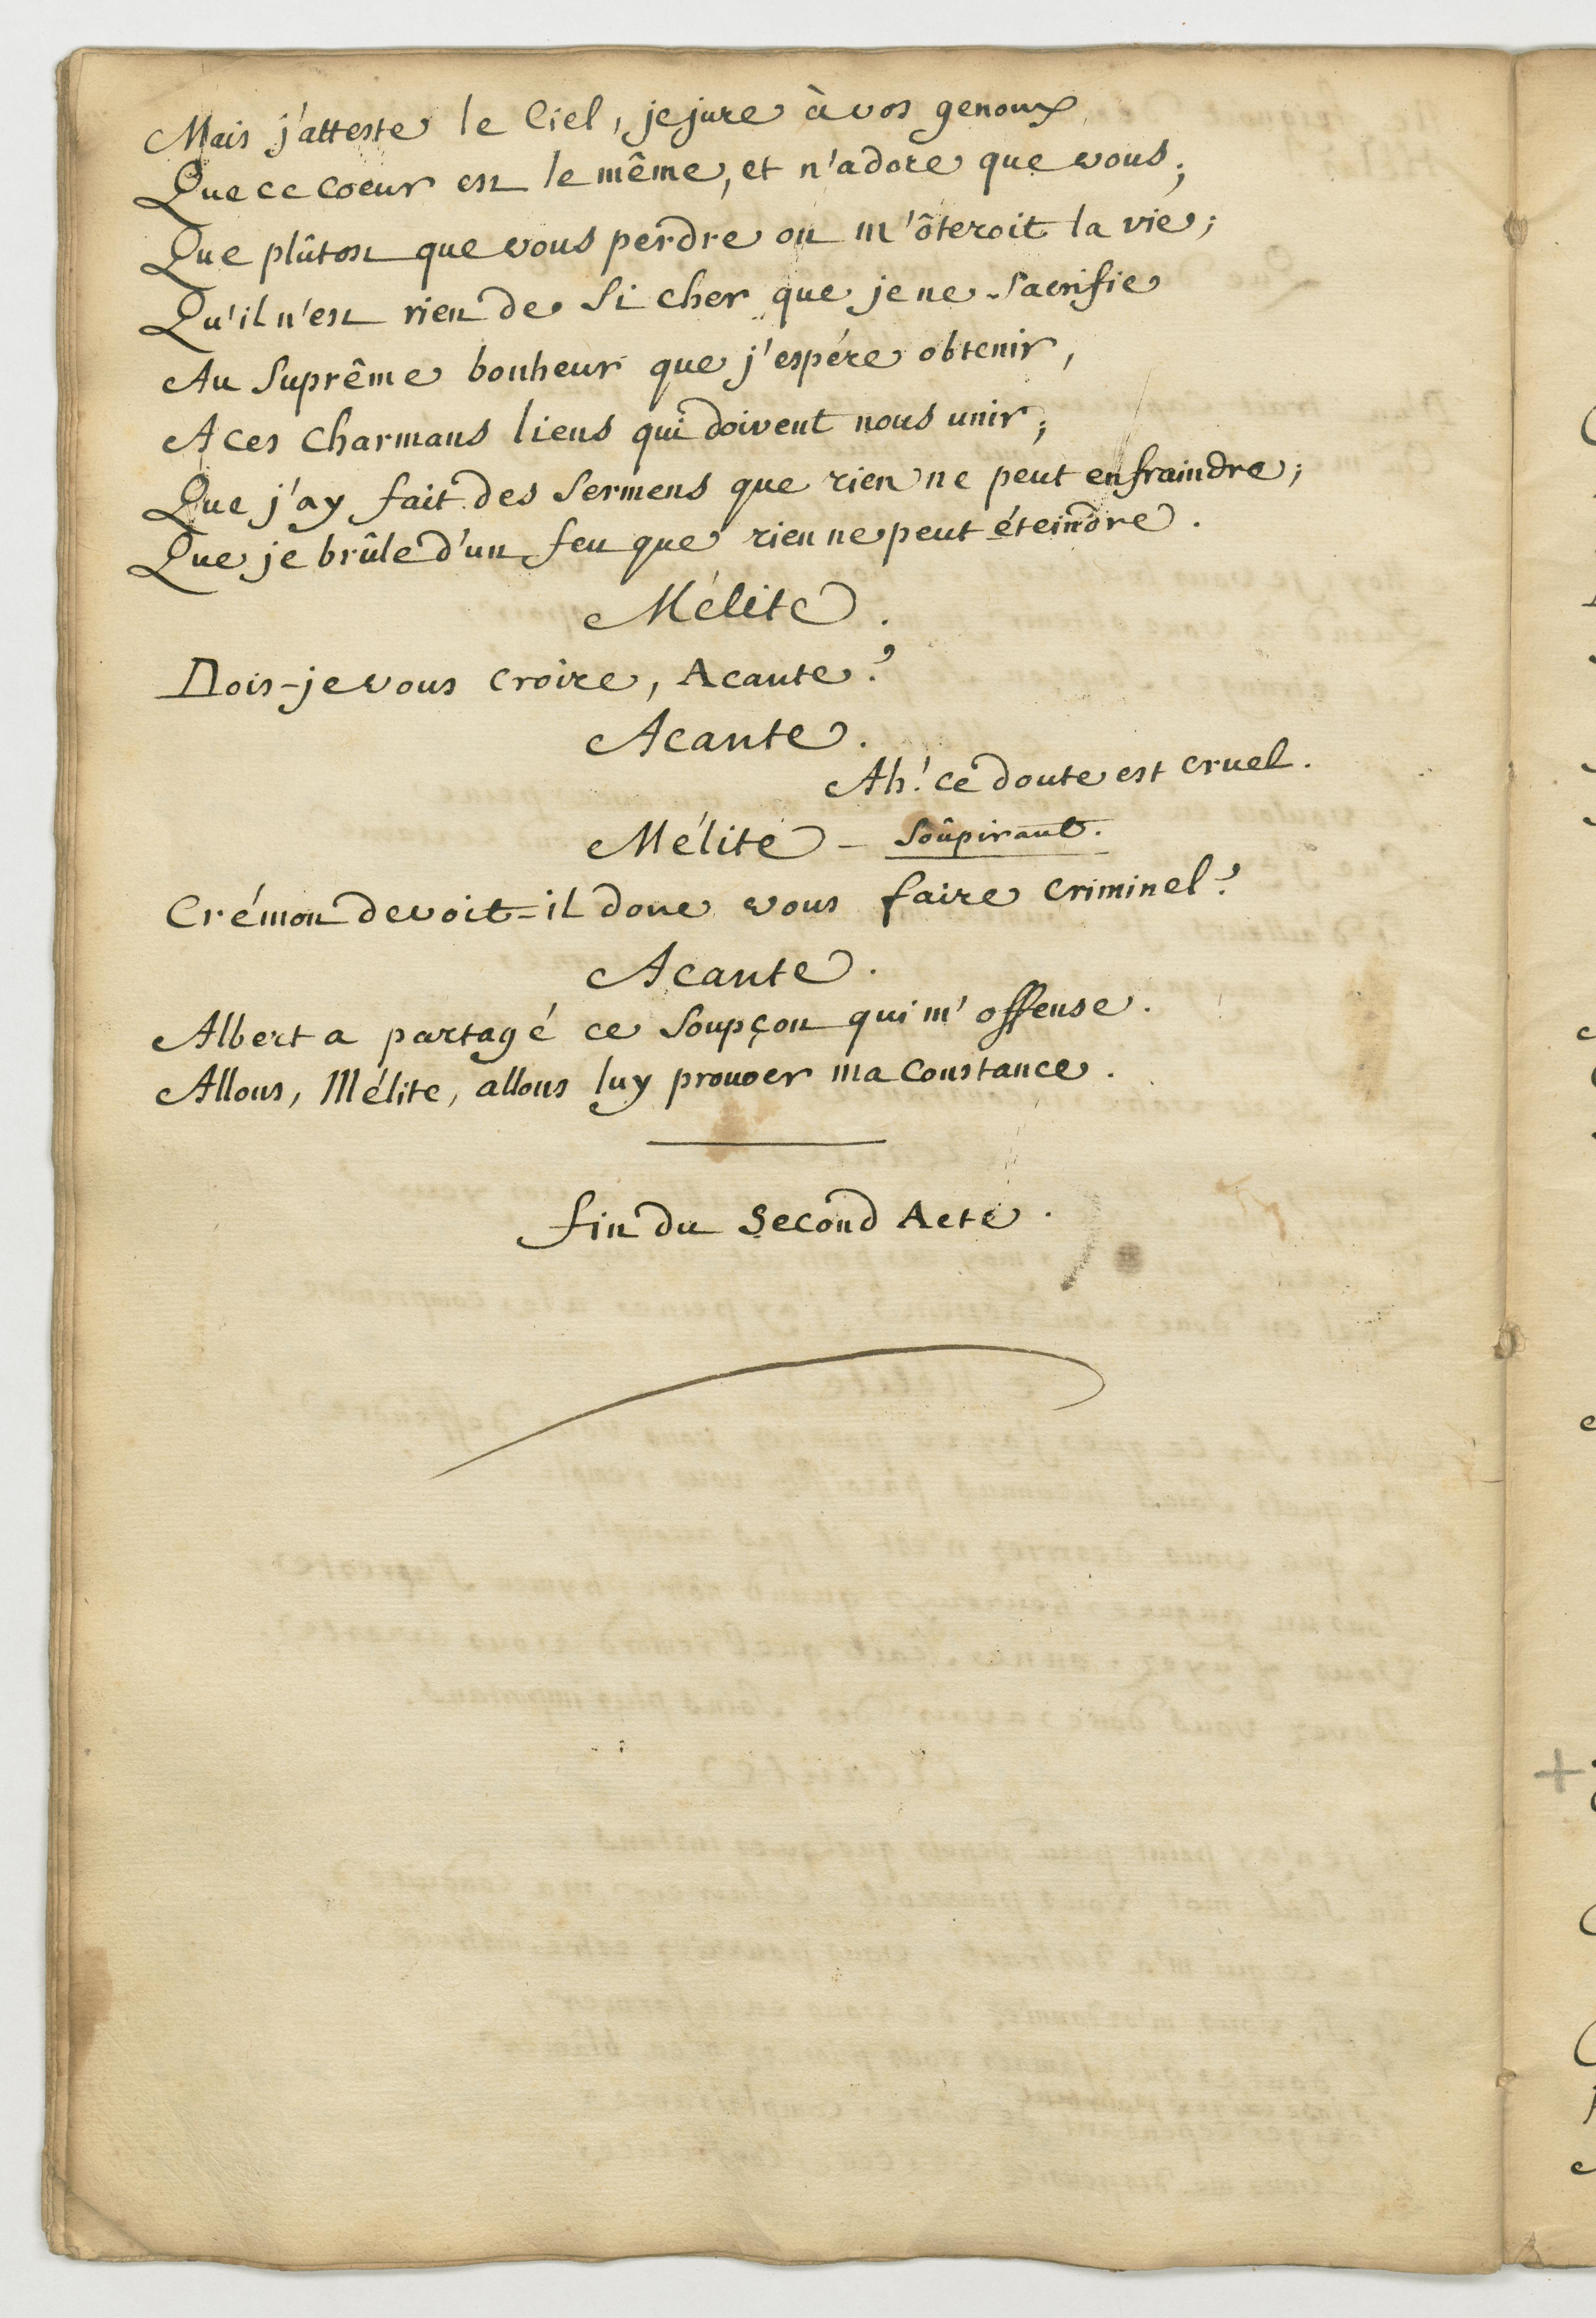 Mais j'atteste le Ciel, je jure à vos genoux,
Que ce coeur est le même, et n'adore que vous;
Que plûtost que vous perdre on m'ôteroit la vie;
Qu'il n'est rien de si cher que je ne sacrifie
Au suprême bonheur que j'espére obtenir,
A ces charmans liens qui doivent nous unir;
Que j'ay fait des sermens que rien ne peut enfraindre;
Que je brûle d'un feu que rien ne peut éteindre.
Mélite.
Dois-je vous croire, Acante?
Acante.
Ah! ce doute est cruel.
Mélite - soûpirant.
Crémon devoit-il donc vous faire criminel?
Acante.
Albert a partagé ce soupçon qui m'offense.
Allons, Mélite, allons luy prouver ma constance.
fin du second Acte.